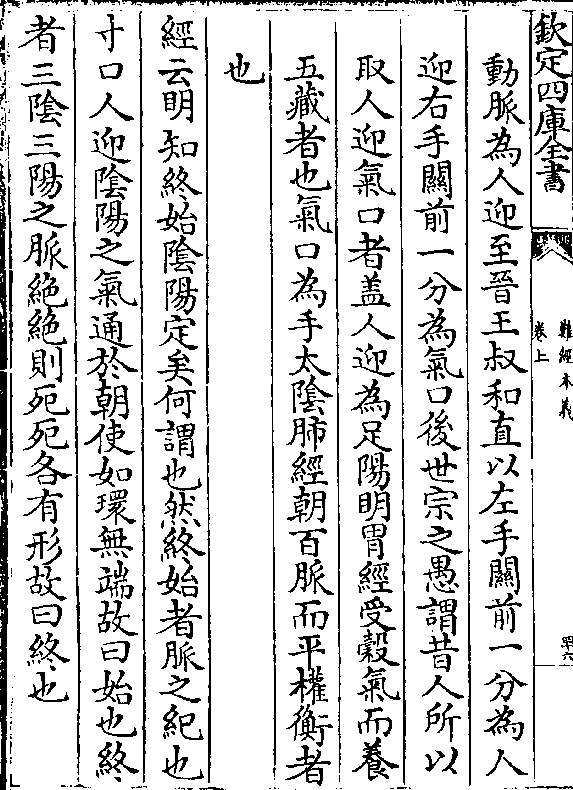 欽定四庫全書
難經本義
卷上
四六
動脈為人迎至晉王叔和直以左手關前一分為人
迎右手關前一分為氣口後世宗之愚謂昔人所以
取人迎氣口者盖人迎為足陽明胃經受穀氣而養
五藏者也氣口為手太陰肺經朝百脈而平權衡者
也
經云明知終始陰陽定矣何謂也然終始者脈之紀也
寸口人迎陰陽之氣通於朝使如環無端故曰始也終
者三陰三陽之脈絶絶則死死各有形故曰終也